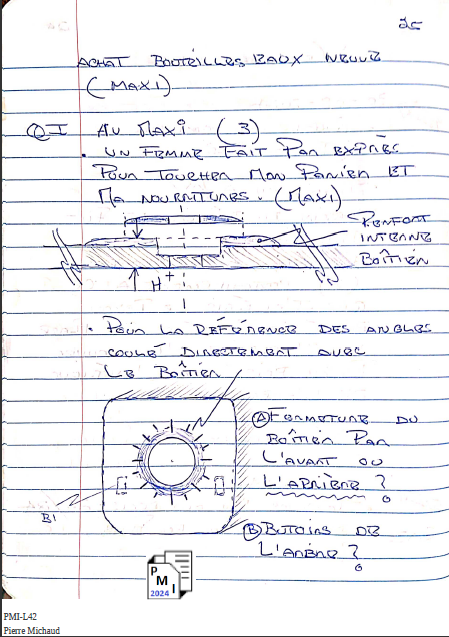 2c
ACHAT BOUTEILLES EAUX NEUVE
(MAXI)
QI AU MAXI (3)
. UN FEMME FAIT PAR EXPRÈS
POUR TOUCHER MON PANIER ET
MA NOURRITURES. (MAXI)
RENFORT
INTERNE
BOÎTIER
H+
. POUR LA RÉFÉRENCE DES ANGLES
COULÉ DIRECTEMENT AVEC
LE BOÎTIER
(A) FERMETURE DU
BOÎTIER PAR
L'AVANT OU
L'ARRIÈRE ?
B1
(B) BUTOIRS DE
L'ARBRE ?
PMI
2024
PMI-L42
Pierre Michaud